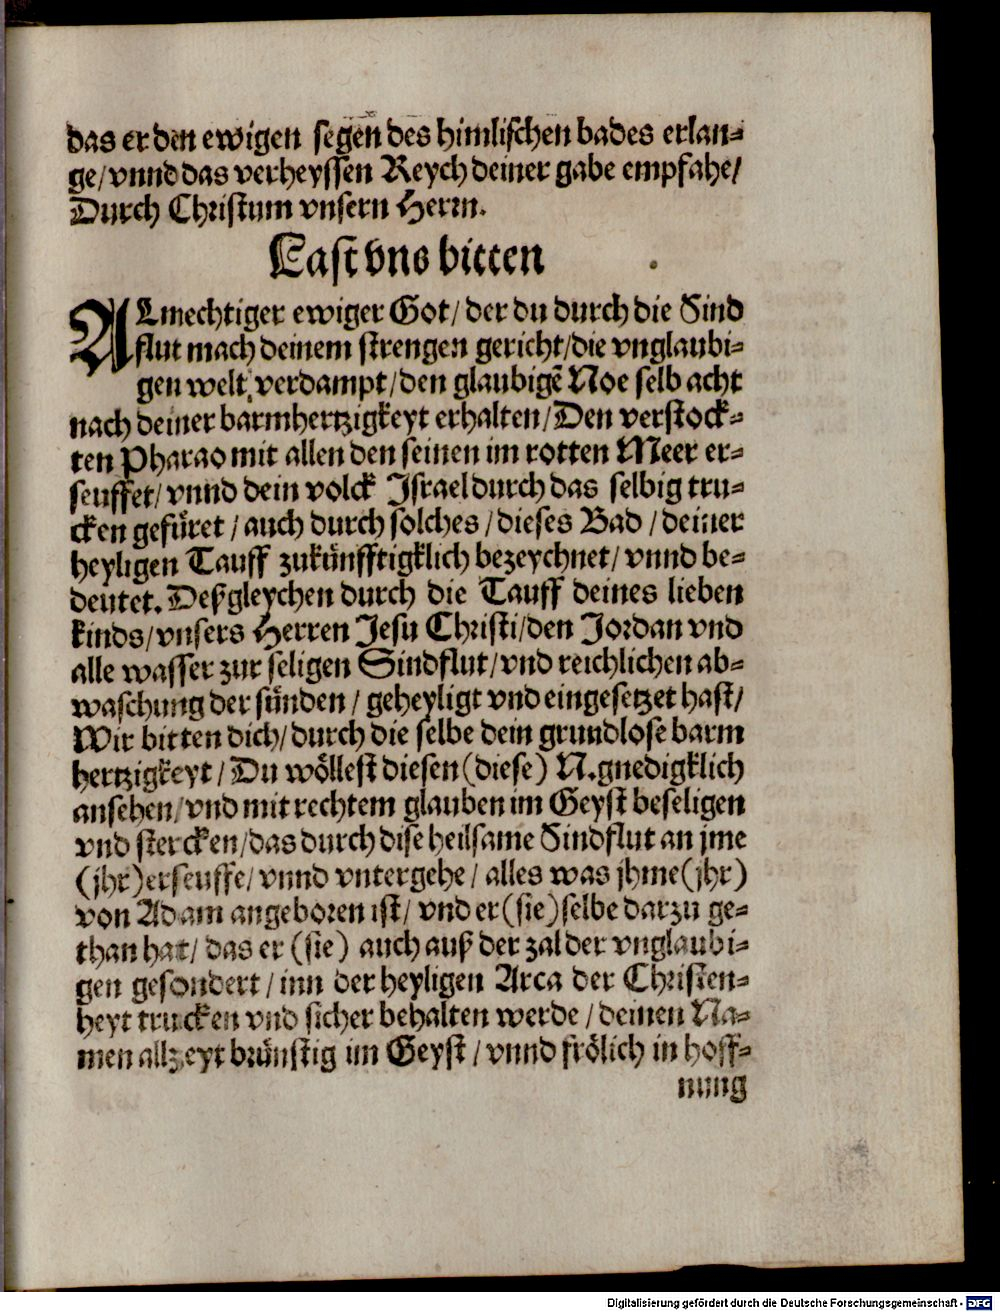 das er den ewigen segen des himlischen bades erlan⸗
ge/ vnnd das verheyssen Reych deiner gabe empfahe/
Durch Christum vnsern Herrn.
Last vns bitten
ALmechtiger ewiger Got/ der du durch die Sind
flut mach deinem strengen gericht/die vnglaubi⸗
gen welt verdampt/den glaubigẽ Noe selb acht
nach deiner barmhertzigkeyt erhalten/Den verstock⸗
ten Pharao mit allen den seinen im rotten Meer er⸗
seuffet/ vnnd dein volck Israel durch das selbig tru⸗
cken gefüret / auch durch solches / dieses Bad / deiner
heyligen Tauff zukünfftigklich bezeychnet/ vnnd be⸗
deutet. Deßgleychen durch die Tauff deines lieben
kinds/vnsers Herren Jesu Christi/den Jordan vnd
alle wasser zur seligen Sindflut/vnd reichlichen ab⸗
waschung der sünden / geheyligt vnd eingesetzet hast/
Wir bitten dich/ durch die selbe dein grundlose barm
hertzigkeyt / Du wöllest diesen(diese) N.gnedigklich
ansehen/vnd mit rechtem glauben im Geyst beseligen
vnd stercken/das durch dise heilsame Sindflut an jme
(jhr)erseuffe/ vnnd vntergehe / alles was jhme(jhr)
von Adam angeboren ist/ vnd er(sie)selbe darzu ge⸗
than hat/ das er (sie) auch auß der zal der vnglaubi⸗
gen gesondert / inn der heyligen Arca der Christen⸗
heyt trucken vnd sicher behalten werde / deinen Na⸗
men allzeyt brünstig im Geyst / vnnd frölich in hoff⸗
nung
Digitalisierung gefördert durch die Deutsche Forschungsgemeinschaft - DFG